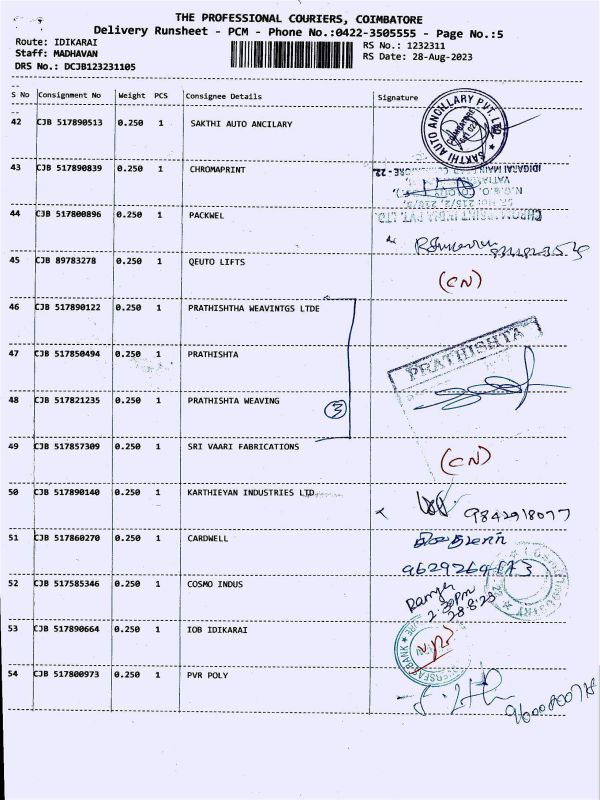 THE PROFESSIONAL COURIERS, COIMBATORE
Delivery Runsheet - PCM - Phone No.:0422-3505555 - Page No.:5
Route: IDIKARAI RS No.: 1232311
Staff: MADHAVAN RS Date: 28-Aug-2023
DRS No.: DCJB123231105
S No Consignment No Weight PCS Consignee Details Signature
42 CJB 517890513 0.250 1 SAKTHI AUTO ANCILARY
SAKTHI AUTO ANCILLARY PVT. LTD
43 CJB 517890839 0.250 1 CHROMAPRINT
44 CJB 517800896 0.250 1 PACKWEL
45 CJB 89783278 0.250 1 QEUTO LIFTS (CN)
46 CJB 517890122 0.250 1 PRATHISHTHA WEAVINTGS LTDE
47 CJB 517850494 0.250 1 PRATHISHTA
PRATHISHTA
48 CJB 517821235 0.250 1 PRATHISHTA WEAVING
3
49 CJB 517857309 0.250 1 SRI VAARI FABRICATIONS (CN)
50 CJB 517890140 0.250 1 KARTHIEYAN INDUSTRIES LTD
9842918077
51 CJB 517860270 0.250 1 CARDWELL
52 CJB 517585346 0.250 1 COSMO INDUS
Ramya
2.30pm
28.8.23
53 CJB 517890664 0.250 1 IOB IDIKARAI
54 CJB 517800973 0.250 1 PVR POLY